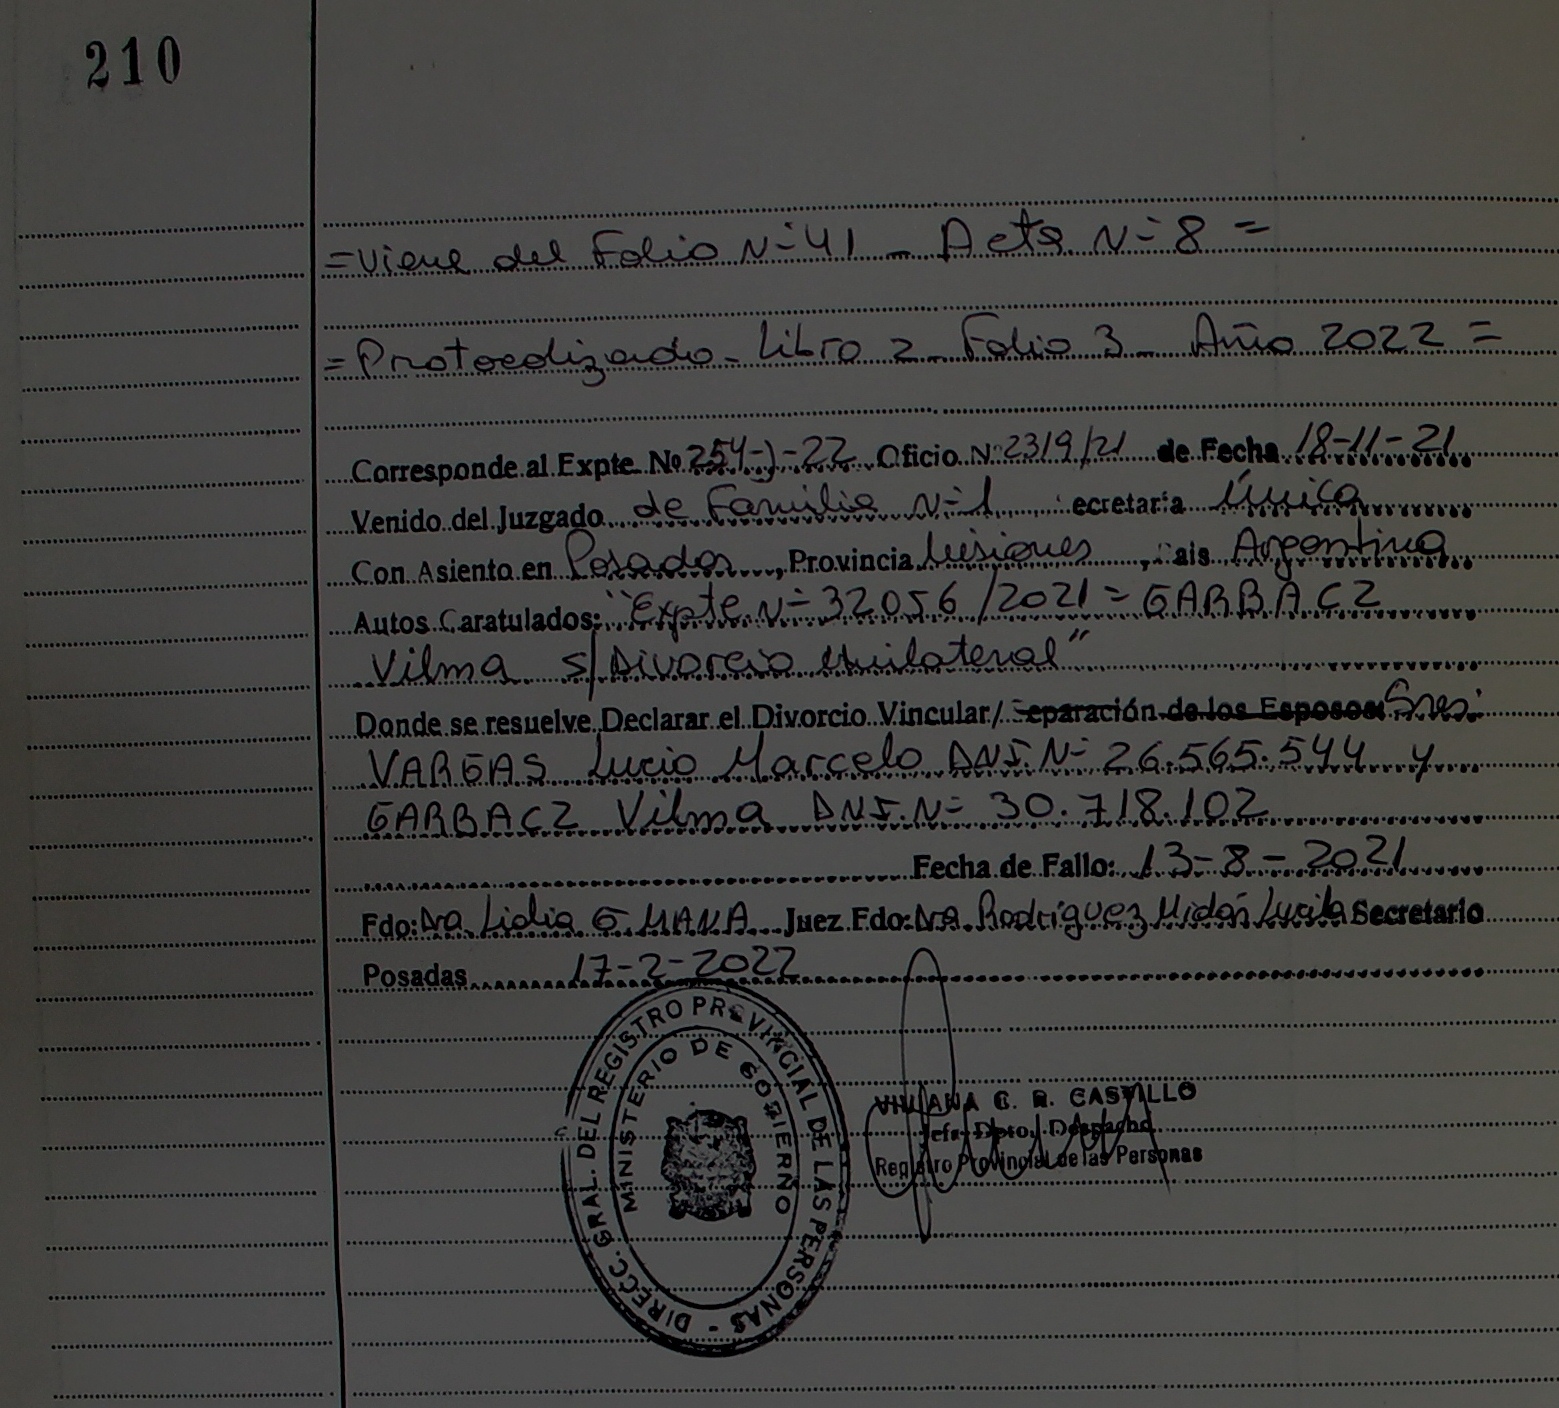 210
=Viene del Folio N=41 - Acta N=8=
=Protocolizado- Libro 2- Folio 3- Año 2022=
Corresponde al Expte. Nº 254-J-22 Oficio Nº 2319/21 de Fecha 18-11-21
Venido del Juzgado de Familia N=1 ecretaria Única
Con Asiento en Posadas, Provincia Misiones, Pais Argentina
Autos Caratulados: "Expte N=32056/2021=GARBACZ
Vilma s/Divorcio Unilateral"
Donde se resuelve Declarar el Divorcio Vincular/ Separación de los Esposos: Sres.
VARGAS Lucio Marcelo DNI.N=26.565.544 y
GARBACZ Vilma DNI.N=30.718.102
Fecha de Fallo: 13-8-2021
Fdo: Dra. Lidia G MANA Juez Fdo: Dra. Rodríguez Lucila Secretario
Posadas 17-2-2022
DIRECC. GRAL. DEL REGISTRO PROVINCIAL DE LAS PERSONAS -
MINISTERIO DE GOBIERNO
VIVIANA G. R. CASTILLO
Jefa Dpto. Despacho
Registro Provincial de las Personas